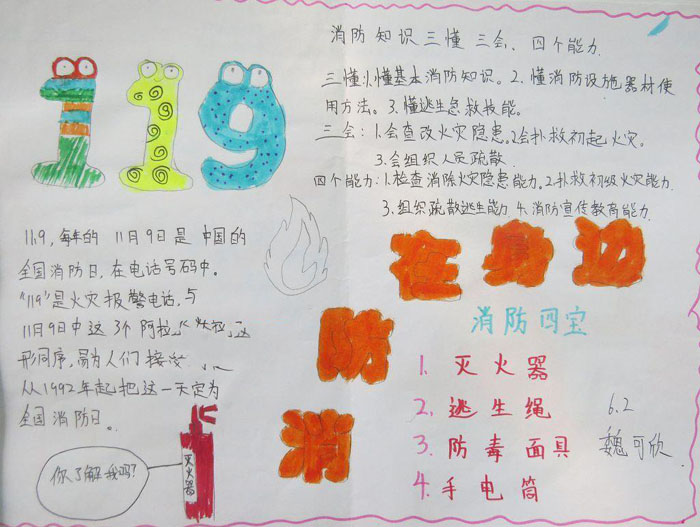 119
消防知识三懂 三会、四个能力
三懂:1.懂基本消防知识。2.懂消防设施器材使
用方法。3.懂逃生急救技能。
三会:1.会查改火灾隐患。2.会扑救初起火灾。
3.会组织人员疏散
四个能力:1.检查消除火灾隐患能力。2.扑救初级火灾能力
3.组织疏散逃生能力 4.消防宣传教育能力
11.9,每年的 11月9日是 中国的
全国消防日,在电话号码中。
"119"是火灾报警电话,与
11月9日中这3个阿拉
形同序,易为人们接
从1992年起把这一天定为
全国消防日。
消防在身边
消防四宝
1. 灭火器
2. 逃生绳
3. 防毒面具
4. 手电筒
6.2
魏可欣
灭火器
你了解我吗?